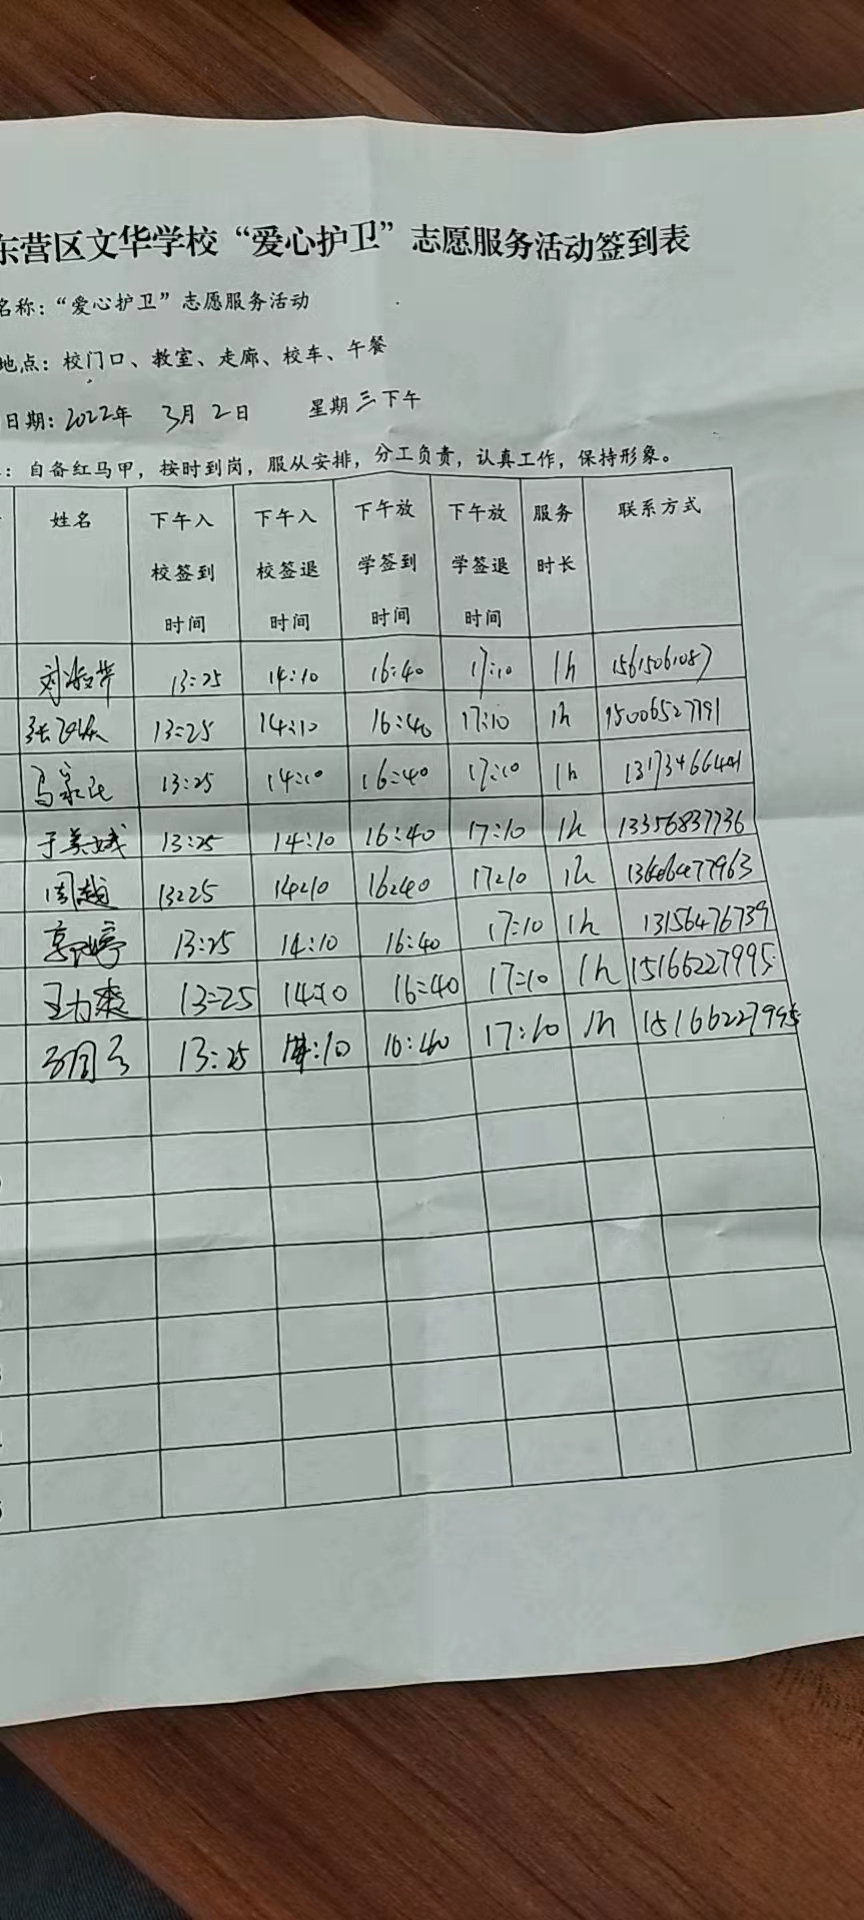 东营区文华学校“爱心护卫”志愿服务活动签到表
名称：“爱心护卫”志愿服务活动
地点：校门口、教室、走廊、校车、午餐
日期：2022年 3月 2日 星期三下午
：自备红马甲，按时到岗，服从安排，分工负责，认真工作，保持形象。
姓名 下午入校签到时间 下午入校签退时间 下午放学签到时间 下午放学签退时间 服务时长 联系方式
刘淑苹 13:25 14:10 16:40 17:10 1h 15615061087
张 13:25 14:10 16:40 17:10 1h 15006527791
马 13:25 14:10 16:40 17:10 1h
于美娥 13:25 14:10 16:40 17:10 1h 13356837736
周越 13:25 14:10 16:40 17:10 1h 13646477963
13:25 14:10 16:40 17:10 1h 13156476739
王力 13:25 14:10 16:40 17:10 1h 15166227995
13:25 14:10 16:40 17:10 1h 15166227995